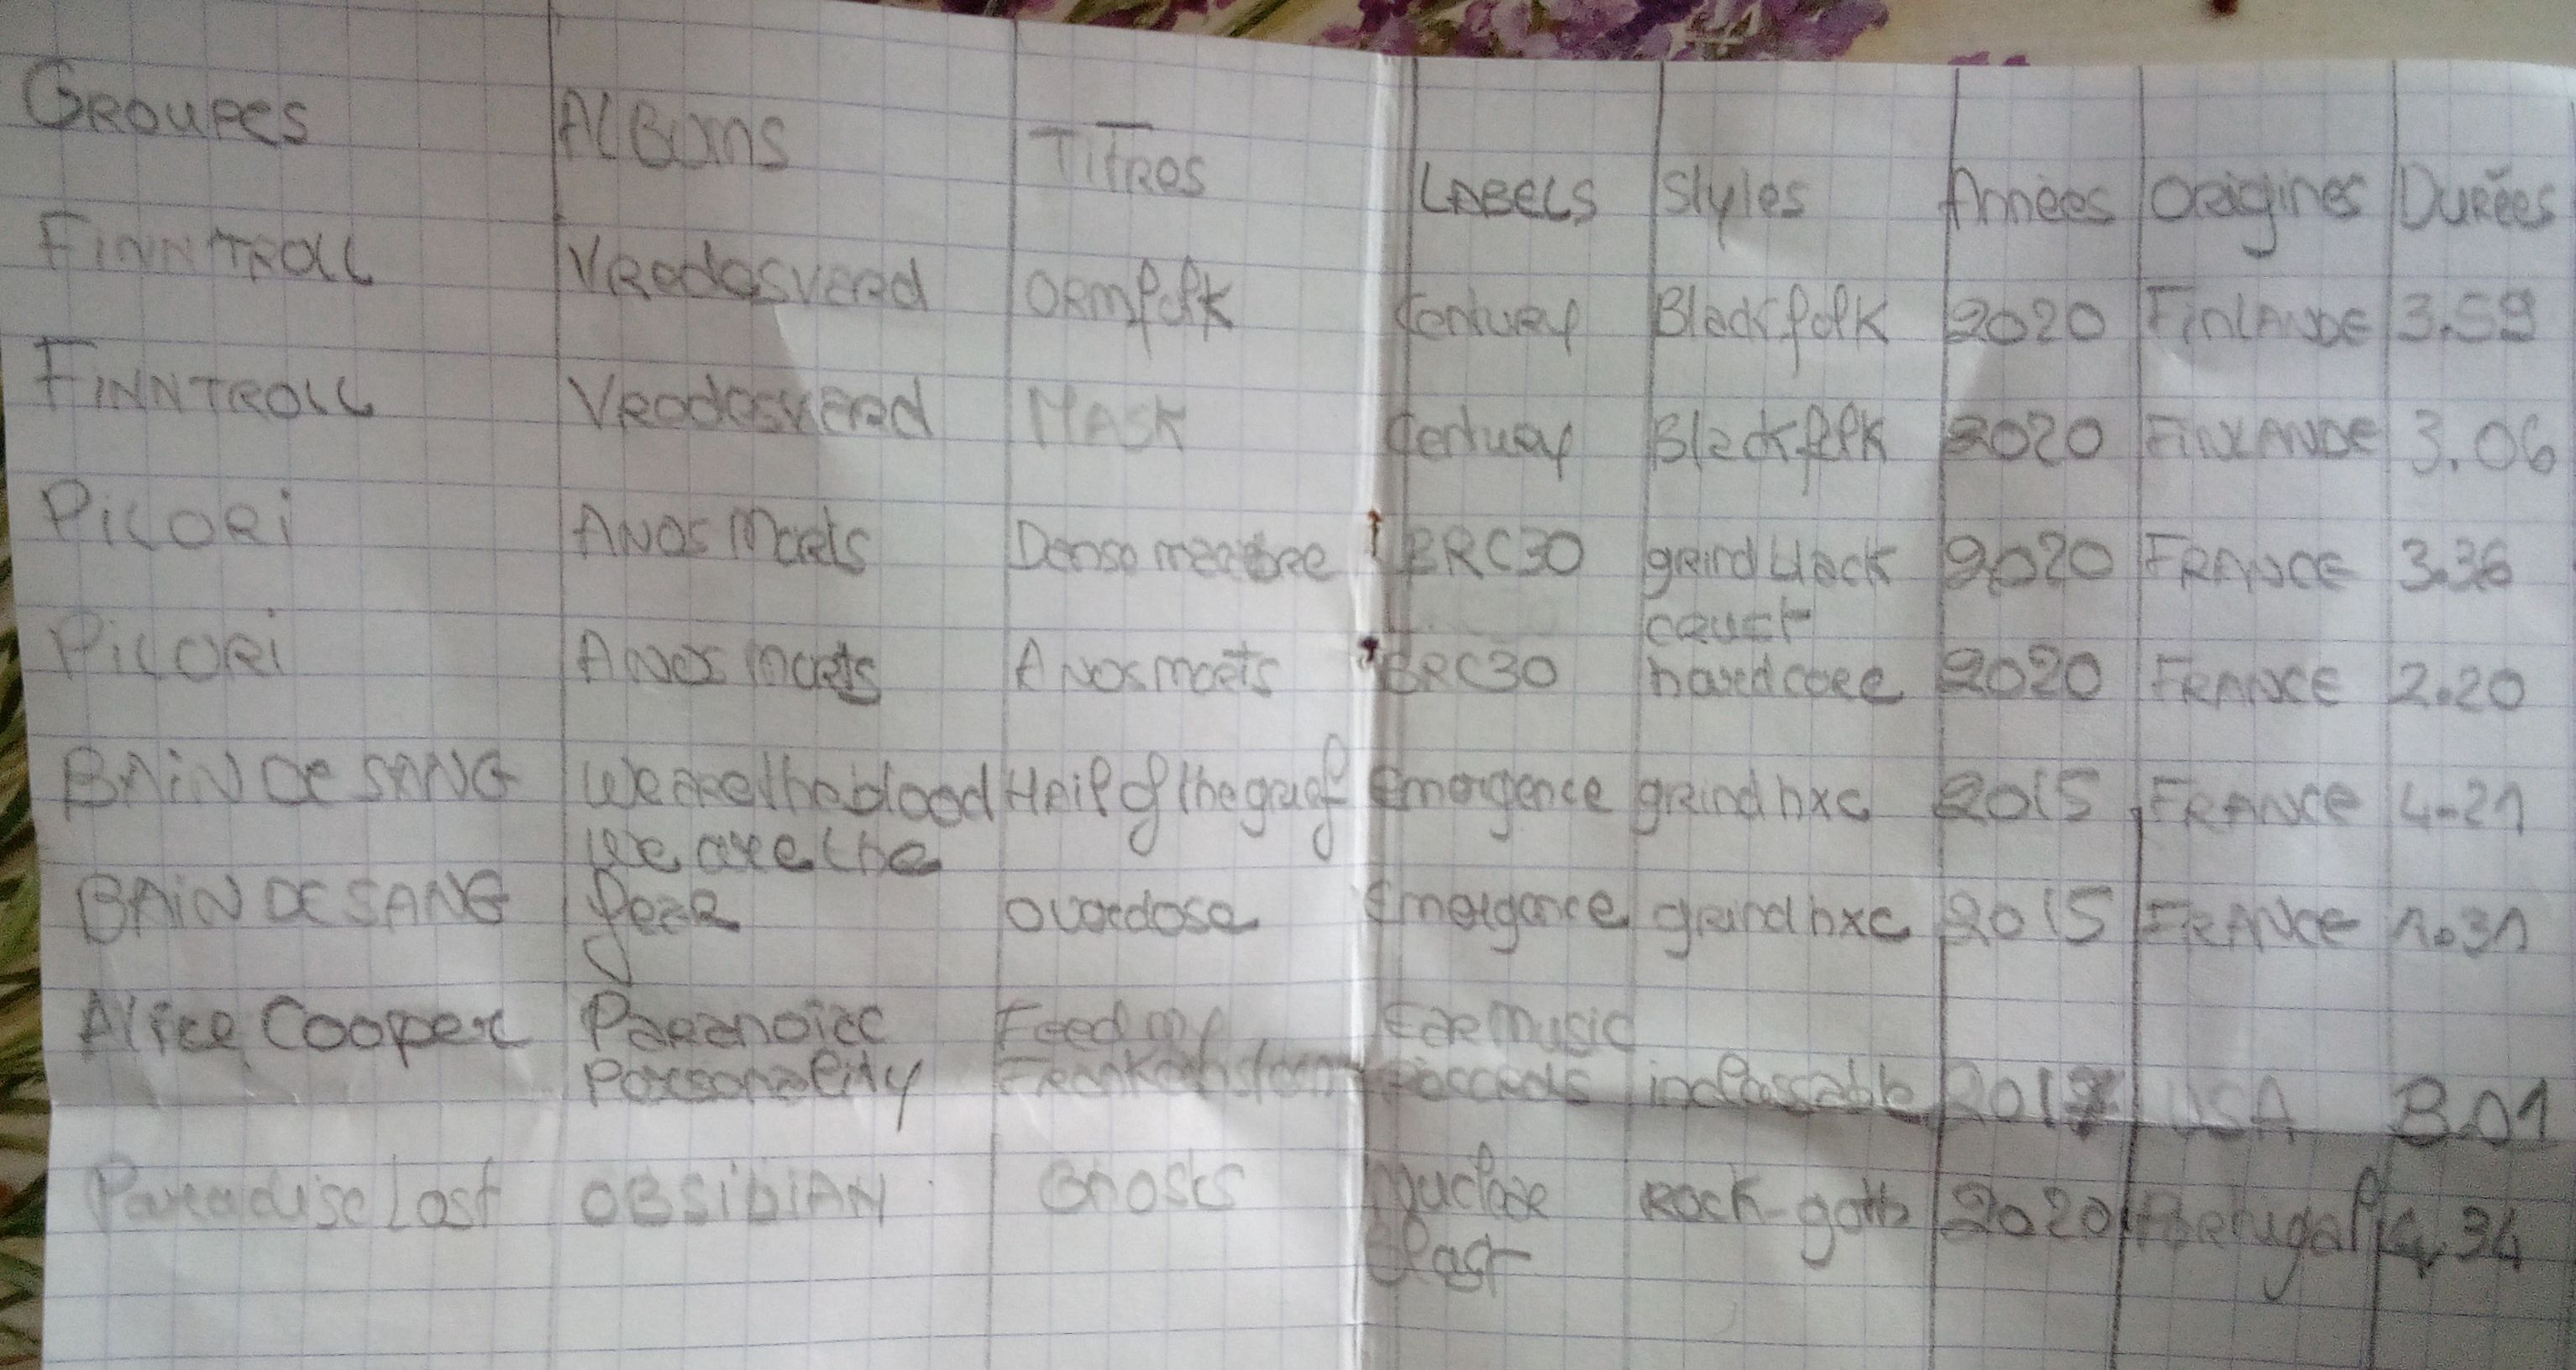 GROUPES ALBUMS TITRES LABELS Styles Années Origines Durées
FINNTROLL Vredesverd ORMfolk Century Black folk 2020 FINLANDE 3.59
FINNTROLL Vredesverd MASK Century Black folk 2020 FINLANDE 3.06
PILORI A NOS Morts Danse macabre BRC30 grind black 2020 FRANCE 3.36
crust
PILORI A NOS morts A NOS morts BRC30 hardcore 2020 FRANCE 2.20
BAIN De SANG We are the blood Hail of the grief Emergence grind hxc 2015 FRANCE 4-21
We are the
BAIN DE SANG fear overdose Emergence grind hxc 2015 FRANCE 1.31
Alice Cooper Paranoiac Feed my Ear Music
Personality Frankenstein Records inclassable 2017 USA 3.01
Paradise Lost OBSIDIAN GhOSTS Nuclear ROCK-goth 2020 Portugal 4.34
Blast